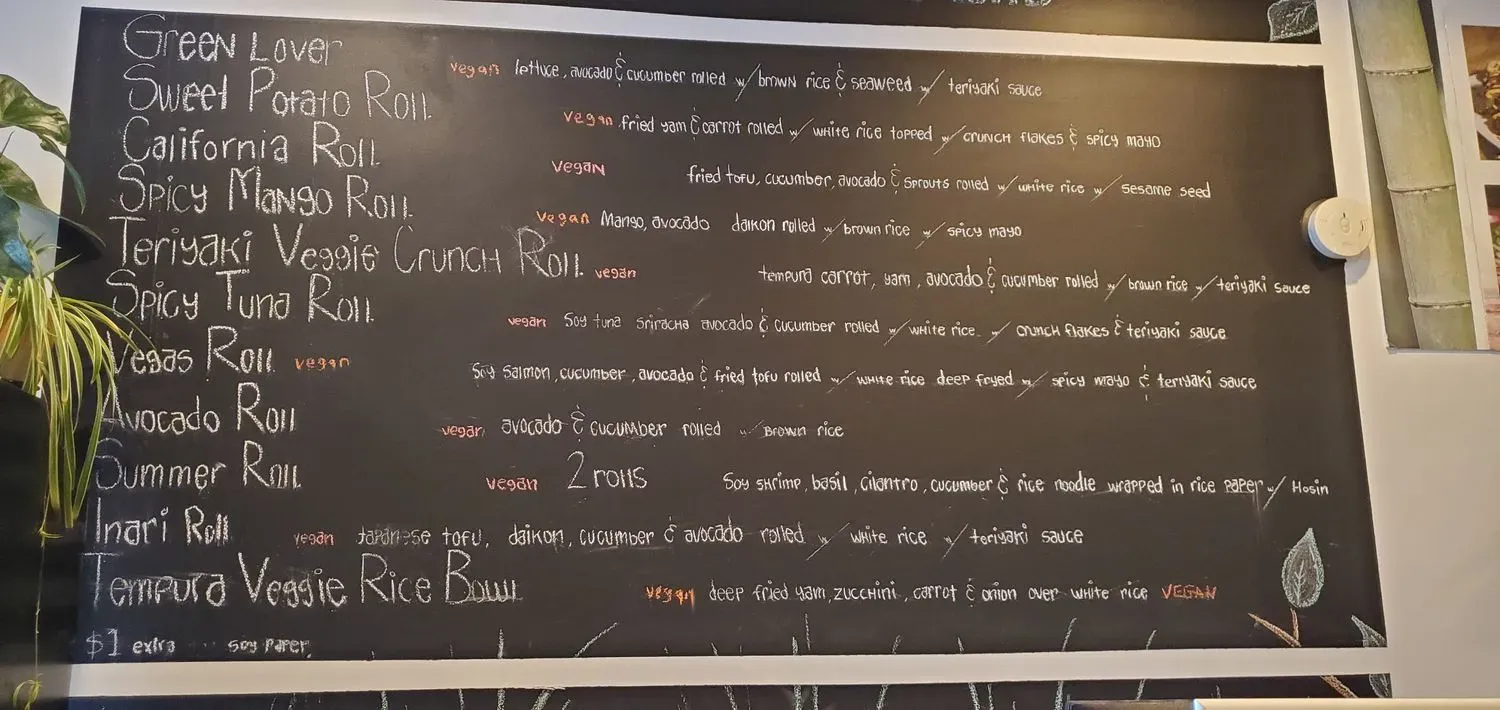 Green Lover vegan lettuce, avocado & cucumber rolled w/ brown rice & seaweed w/ teriyaki sauce
Sweet Potato Roll vegan fried yam & carrot rolled w/ white rice topped w/ crunch flakes & spicy mayo
California Roll vegan fried tofu, cucumber, avocado & sprouts rolled w/ white rice w/ sesame seed
Spicy Mango Roll vegan Mango, avocado daikon rolled w/ brown rice w/ spicy mayo
Teriyaki Veggie Crunch Roll vegan tempura carrot, yam, avocado & cucumber rolled w/ brown rice w/ teriyaki sauce
Spicy Tuna Roll vegan Soy tuna sriracha avocado & cucumber rolled w/ white rice w/ crunch flakes & teriyaki sauce
Vegas Roll vegan Soy Salmon, cucumber, avocado & fried tofu rolled w/ white rice deep fryed w/ spicy mayo & teriyaki sauce
Avocado Roll vegan avocado & cucumber rolled w/ Brown rice
Summer Roll vegan 2 rolls Soy shrimp, basil, cilantro, cucumber & rice noodle wrapped in rice paper w/ Hosin
Inari Roll vegan Japanese tofu, daikon, cucumber & avocado rolled w/ white rice w/ teriyaki sauce
Tempura Veggie Rice Bowl vegan deep fried yam, zucchini, carrot & onion over white rice VEGAN
$1 extra ... soy paper